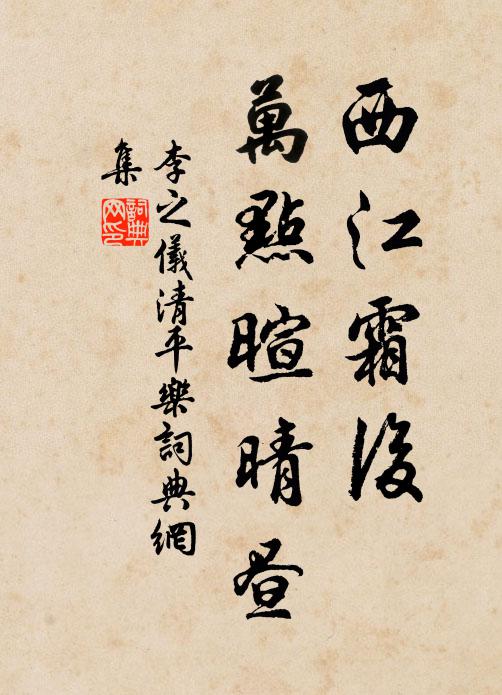 西江霜後
萬點暄晴晝
李之儀清平樂詞典網
集
詞典網印